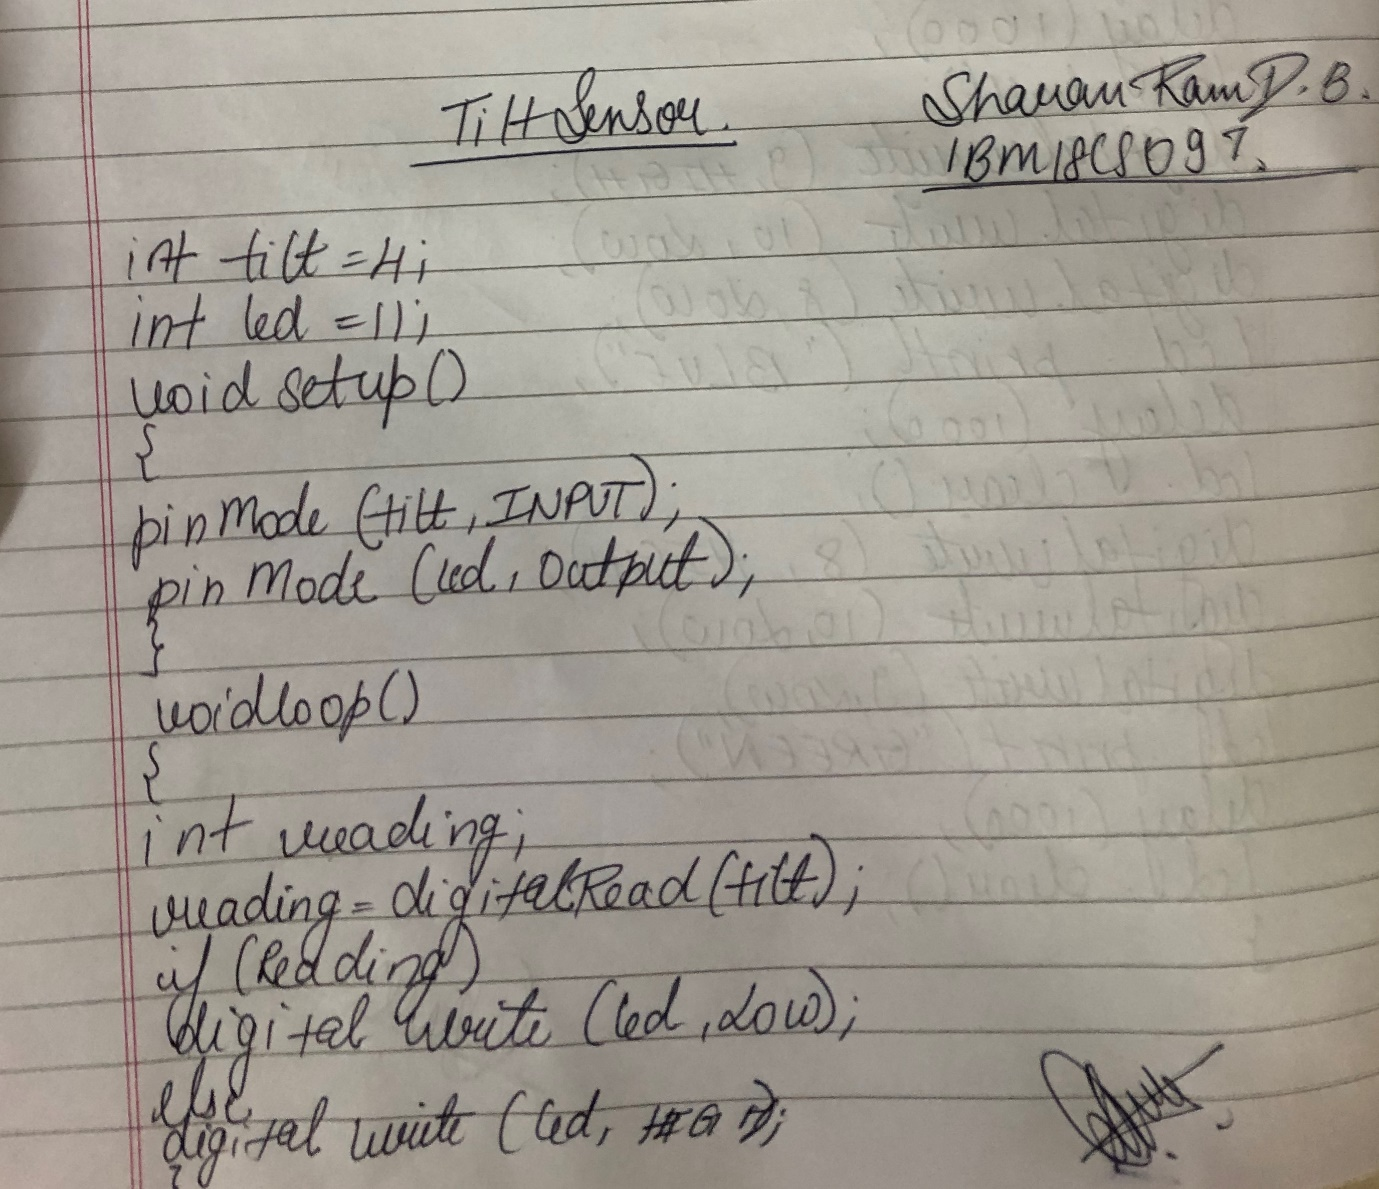 Tilt Sensor.
Sharan Ram D. B.
1BM18CS097.
int tilt =4;
int led =11;
void setup()
{
pinMode (tilt, INPUT);
pin Mode (led, Output);
}
void loop()
{
int reading;
reading = digitalRead (tilt);
if (Reading)
digital Write (led, Low);
else
digital write (led,
}